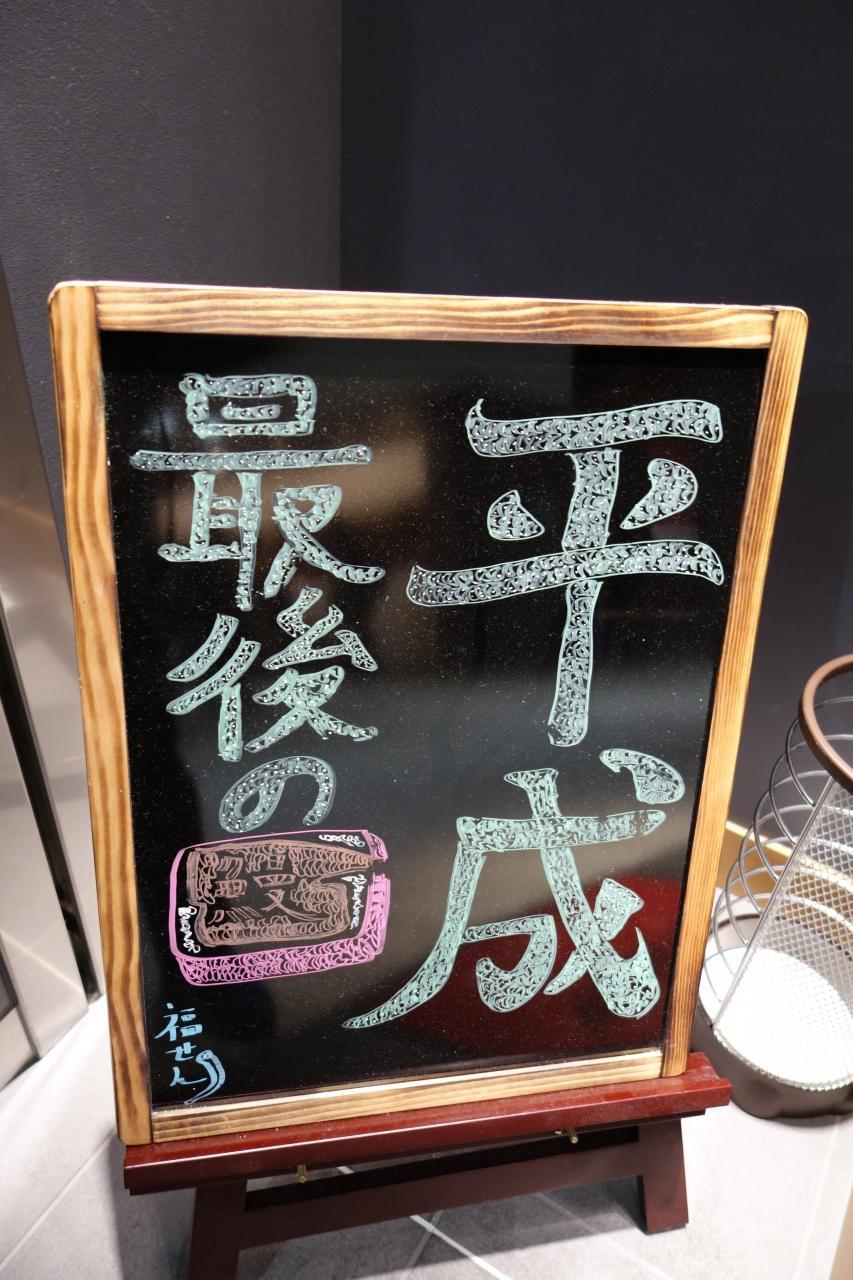 平成
最後の
鰻
福せん